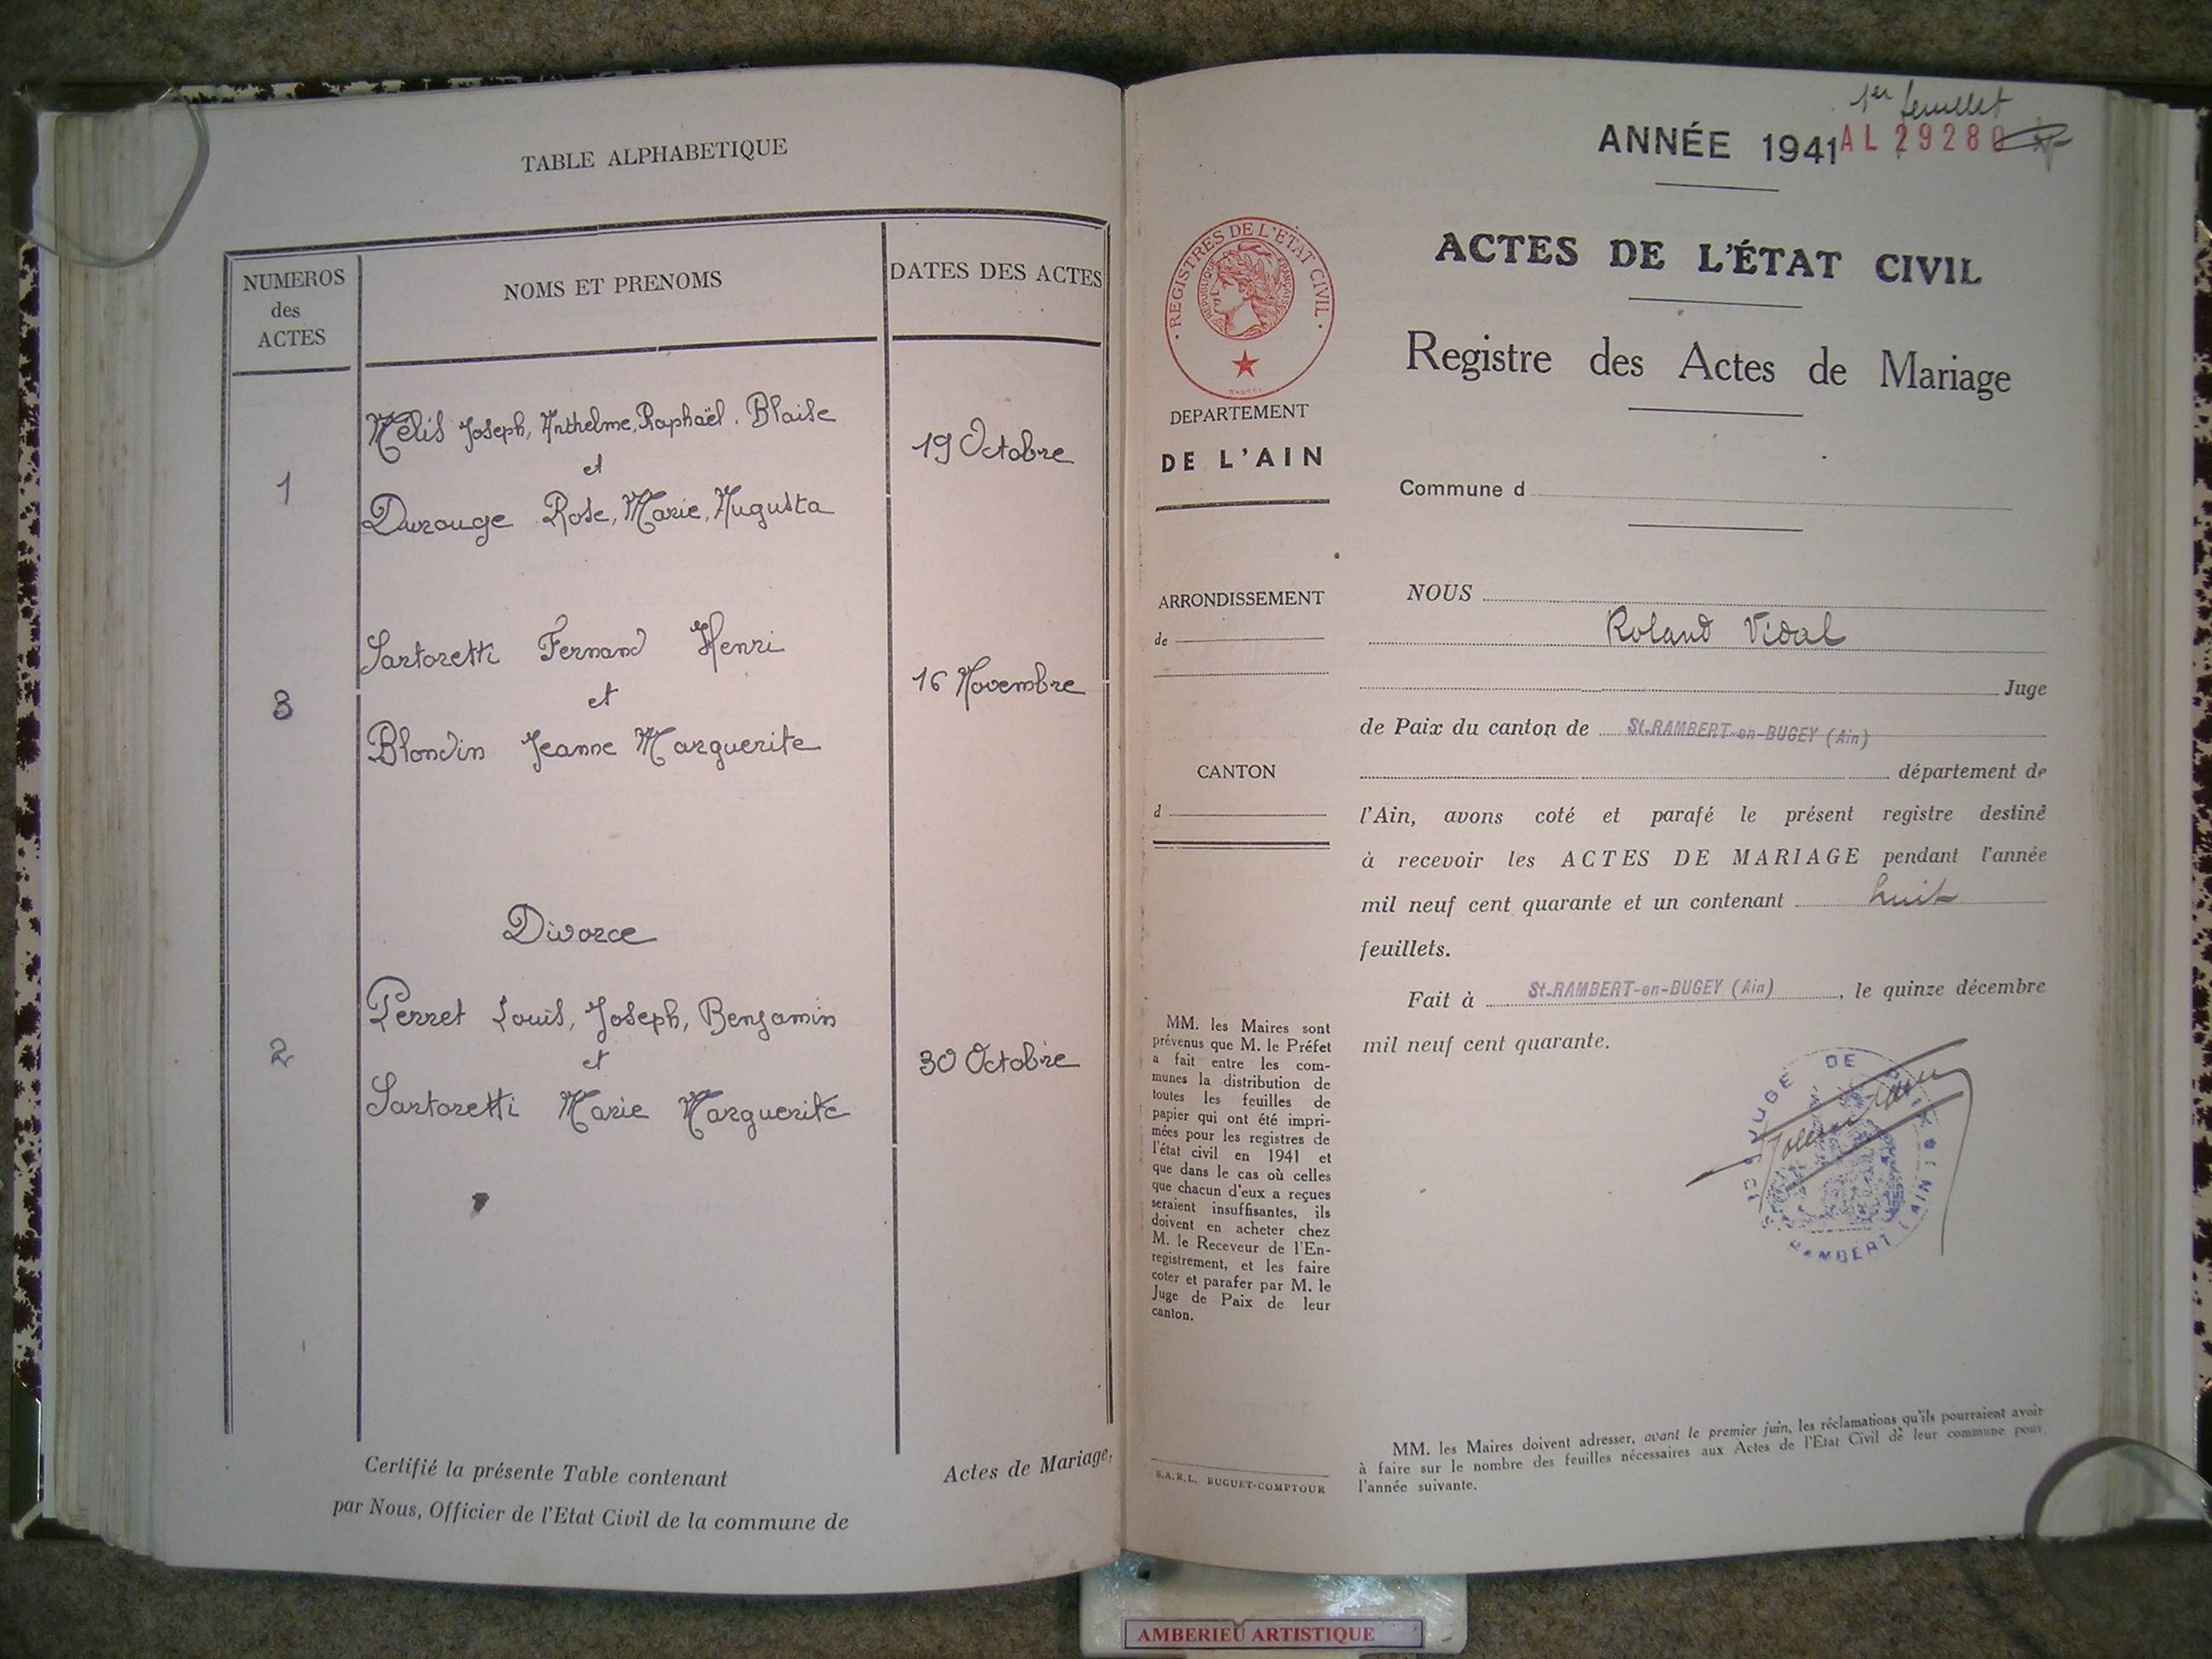 TABLE ALPHABETIQUE
NUMEROS
des
ACTES
NOMS ET PRENOMS
DATES DES ACTES
Mélis Joseph, Anthelme, Raphaël. Blaise
et
1
19 Octobre
Durouge Rose, Marie, Augusta
Sartoretti Fernand Henri
et
3
16 Novembre
Blondin Jeanne Marguerite
Divorce
Perret Louis, Joseph, Benjamin
et
2
30 Octobre
Sartoretti Marie Marguerite
Certifié la présente Table contenant Actes de Mariage,
par Nous, Officier de l'Etat Civil de la commune de
1er feuillet
ANNÉE 1941
AL 29280
ACTES DE L'ÉTAT CIVIL
Registre des Actes de Mariage
REGISTRES DE L'ETAT CIVIL
REPUBLIQUE FRANÇAISE
DEPARTEMENT
DE L'AIN
ARRONDISSEMENT
de
CANTON
d
MM. les Maires sont
prévenus que M. le Préfet
a fait entre les com-
munes la distribution de
toutes les feuilles de
papier qui ont été impri-
mées pour les registres de
l'état civil en 1941 et
que dans le cas où celles
que chacun d'eux a reçues
seraient insuffisantes, ils
doivent en acheter chez
M. le Receveur de l'En-
registrement, et les faire
coter et parafer par M. le
Juge de Paix de leur
canton.
S.A.R.L. BUGUET-COMPTOUR
Commune d
NOUS
Roland Vidal
Juge
de Paix du canton de St-RAMBERT-en-BUGEY (Ain)
département de
l'Ain, avons coté et parafé le présent registre destiné
à recevoir les ACTES DE MARIAGE pendant l'année
mil neuf cent quarante et un contenant huit
feuillets.
Fait à St-RAMBERT-en-BUGEY (Ain), le quinze décembre
mil neuf cent quarante.
JUGE DE
RAMBERT (AIN)
MM. les Maires doivent adresser, avant le premier juin, les réclamations qu'ils pourraient avoir
à faire sur le nombre des feuilles nécessaires aux Actes de l'Etat Civil de leur commune pour
l'année suivante.
AMBERIEU ARTISTIQUE